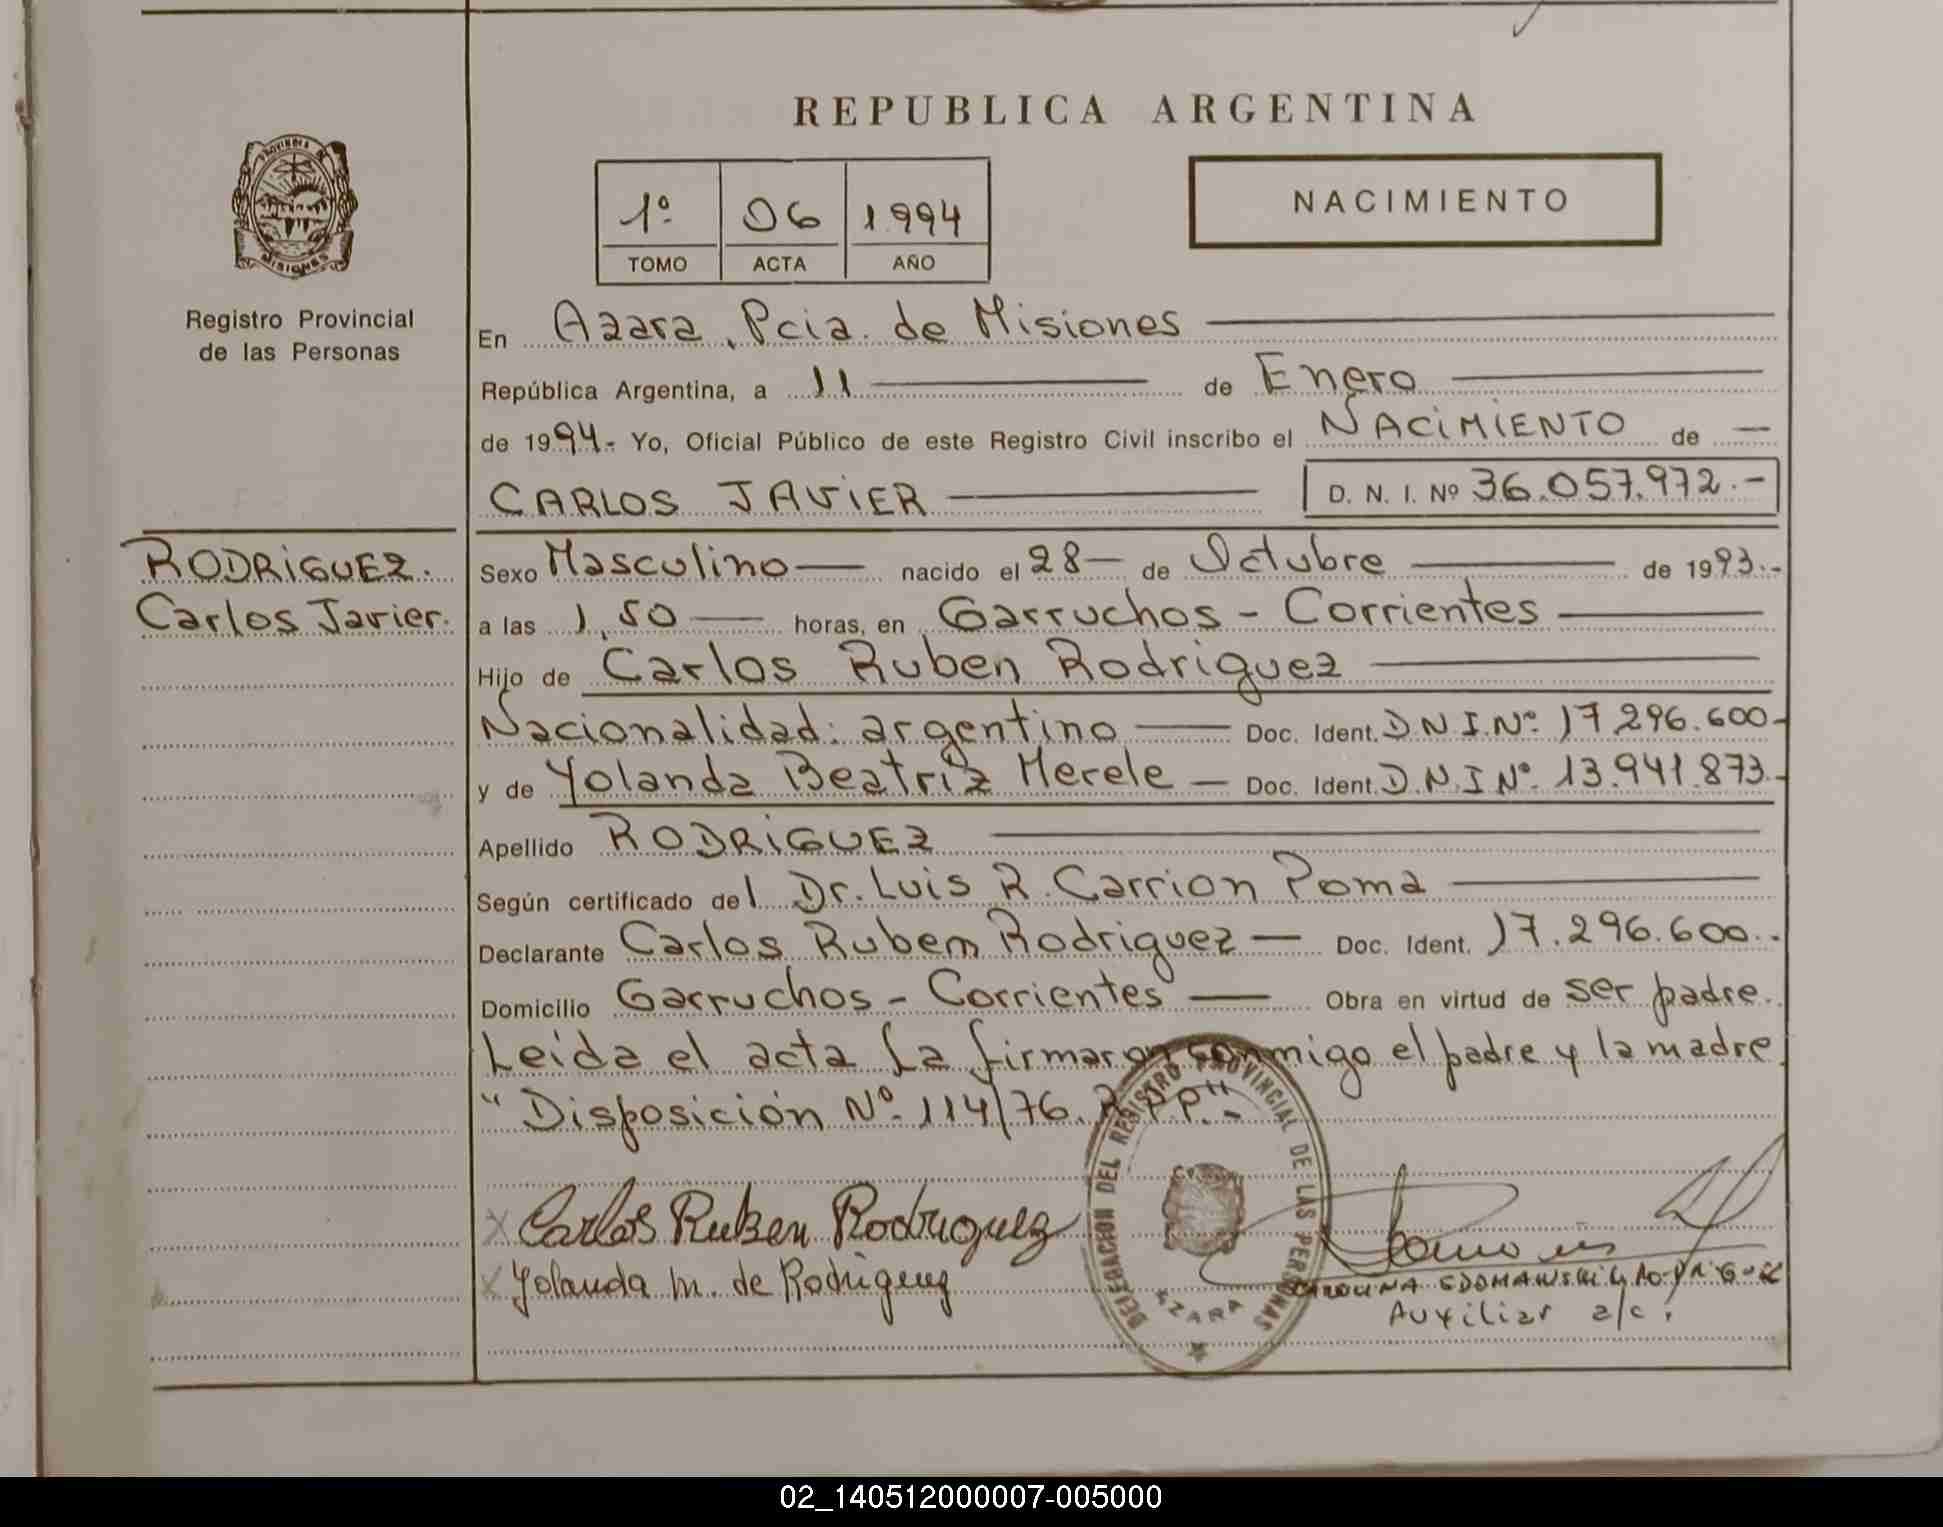 REPUBLICA ARGENTINA
PROVINCIA DE
MISIONES
Registro Provincial
de las Personas
1º 06 1994
TOMO ACTA AÑO
NACIMIENTO
En Azara, Pcia. de Misiones
República Argentina, a 11 de Enero
de 1994.- Yo, Oficial Público de este Registro Civil inscribo el NACIMIENTO de
CARLOS JAVIER D. N. I. Nº 36.057.972.-
RODRIGUEZ.
Carlos Javier.
Sexo Masculino nacido el 28 de Octubre de 1993.-
a las 1,50 horas, en Garruchos - Corrientes
Hijo de Carlos Ruben Rodriguez
Nacionalidad: argentino Doc. Ident. D N I. Nº 17 296.600-
y de Yolanda Beatriz Merele Doc. Ident. D.N.I Nº. 13.941.873.-
Apellido RODRIGUEZ
Según certificado del Dr. Luis R. Carrion Poma
Declarante Carlos Ruben Rodriguez Doc. Ident. 17.296.600.-
Domicilio Garruchos - Corrientes Obra en virtud de ser padre.
Leida el acta la firmaron conmigo el padre y la madre.
"Disposición Nº 114/76. R.P.P."-
Carlos Ruben Rodriguez
Yolanda M. de Rodriguez
DELEGACION DEL REGISTRO PROVINCIAL DE LAS PERSONAS
AZARA
Auxiliar a/c.
02_140512000007-005000